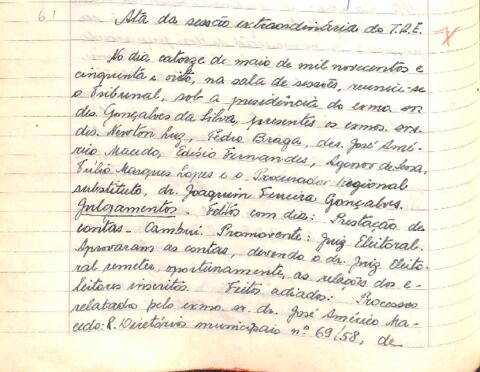 61
Ata da sessão extraordinária do T.R.E.
No dia catorze de maio de mil novecentos e
cinquenta e oito, na sala de sessões, reuniu-se
o Tribunal, sob a presidência do exmo snr
des. Gonçalves da Silva, presentes os exmos. snrs.
des. Newton Luz, Pedro Braga, drs. José Amé-
rico Macedo, Edésio Fernandes, Agenor de Sena,
Túlio Marques Lopes e o Procurador Regional
substituto, dr. Joaquim Ferreira Gonçalves.
Julgamentos. Feitos com dia: Prestação de
contas. Cambuí. Promovente: Juiz Eleitoral.
Aprovaram as contas, devendo o dr. Juiz Eleito-
ral remeter, oportunamente, as relações dos e-
leitores inscritos. Feitos adiados: Processos
relatados pelo exmo sr. dr. José Américo Ma-
cedo: R. Diretórios municipais nº 69/58, de